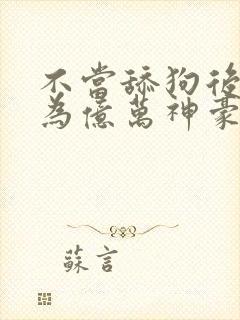 不當舔狗後
為億萬神豪
蘇言